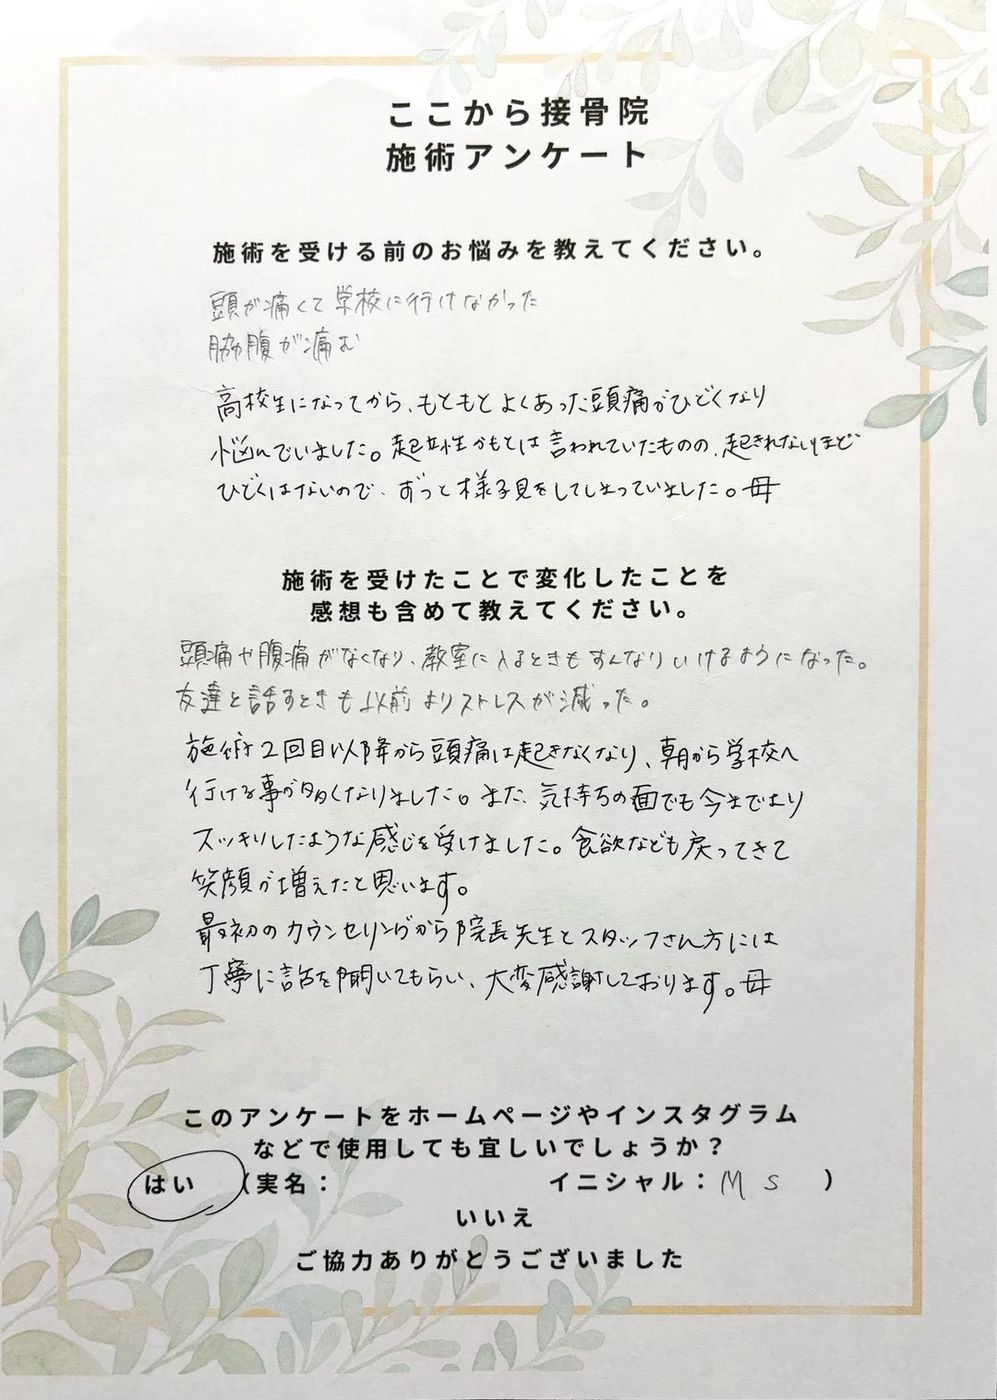 ここから接骨院
施術アンケート
施術を受ける前のお悩みを教えてください。
頭が痛くて学校に行けなかった
脇腹が痛む
高校生になってから、もともとよくあった頭痛がひどくなり
悩んでいました。起立性かもとは言われていたものの、起きれないほど
ひどくはないので、ずっと様子見をしてしまっていました。母
施術を受けたことで変化したことを
感想も含めて教えてください。
頭痛や腹痛がなくなり、教室に入るときもすんなりいけるようになった。
友達と話すときも以前よりストレスが減った。
施術2回目以降から頭痛は起きなくなり、朝から学校へ
行ける事が多くなりました。また、気持ちの面でも今までより
スッキリしたような感じを受けました。食欲なども戻ってきて
笑顔が増えたと思います。
最初のカウンセリングから院長先生とスタッフさん方には
丁寧に話を聞いてもらい、大変感謝しております。母
このアンケートをホームページやインスタグラム
などで使用しても宜しいでしょうか？
はい （実名： イニシャル：M S ）
いいえ
ご協力ありがとうございました